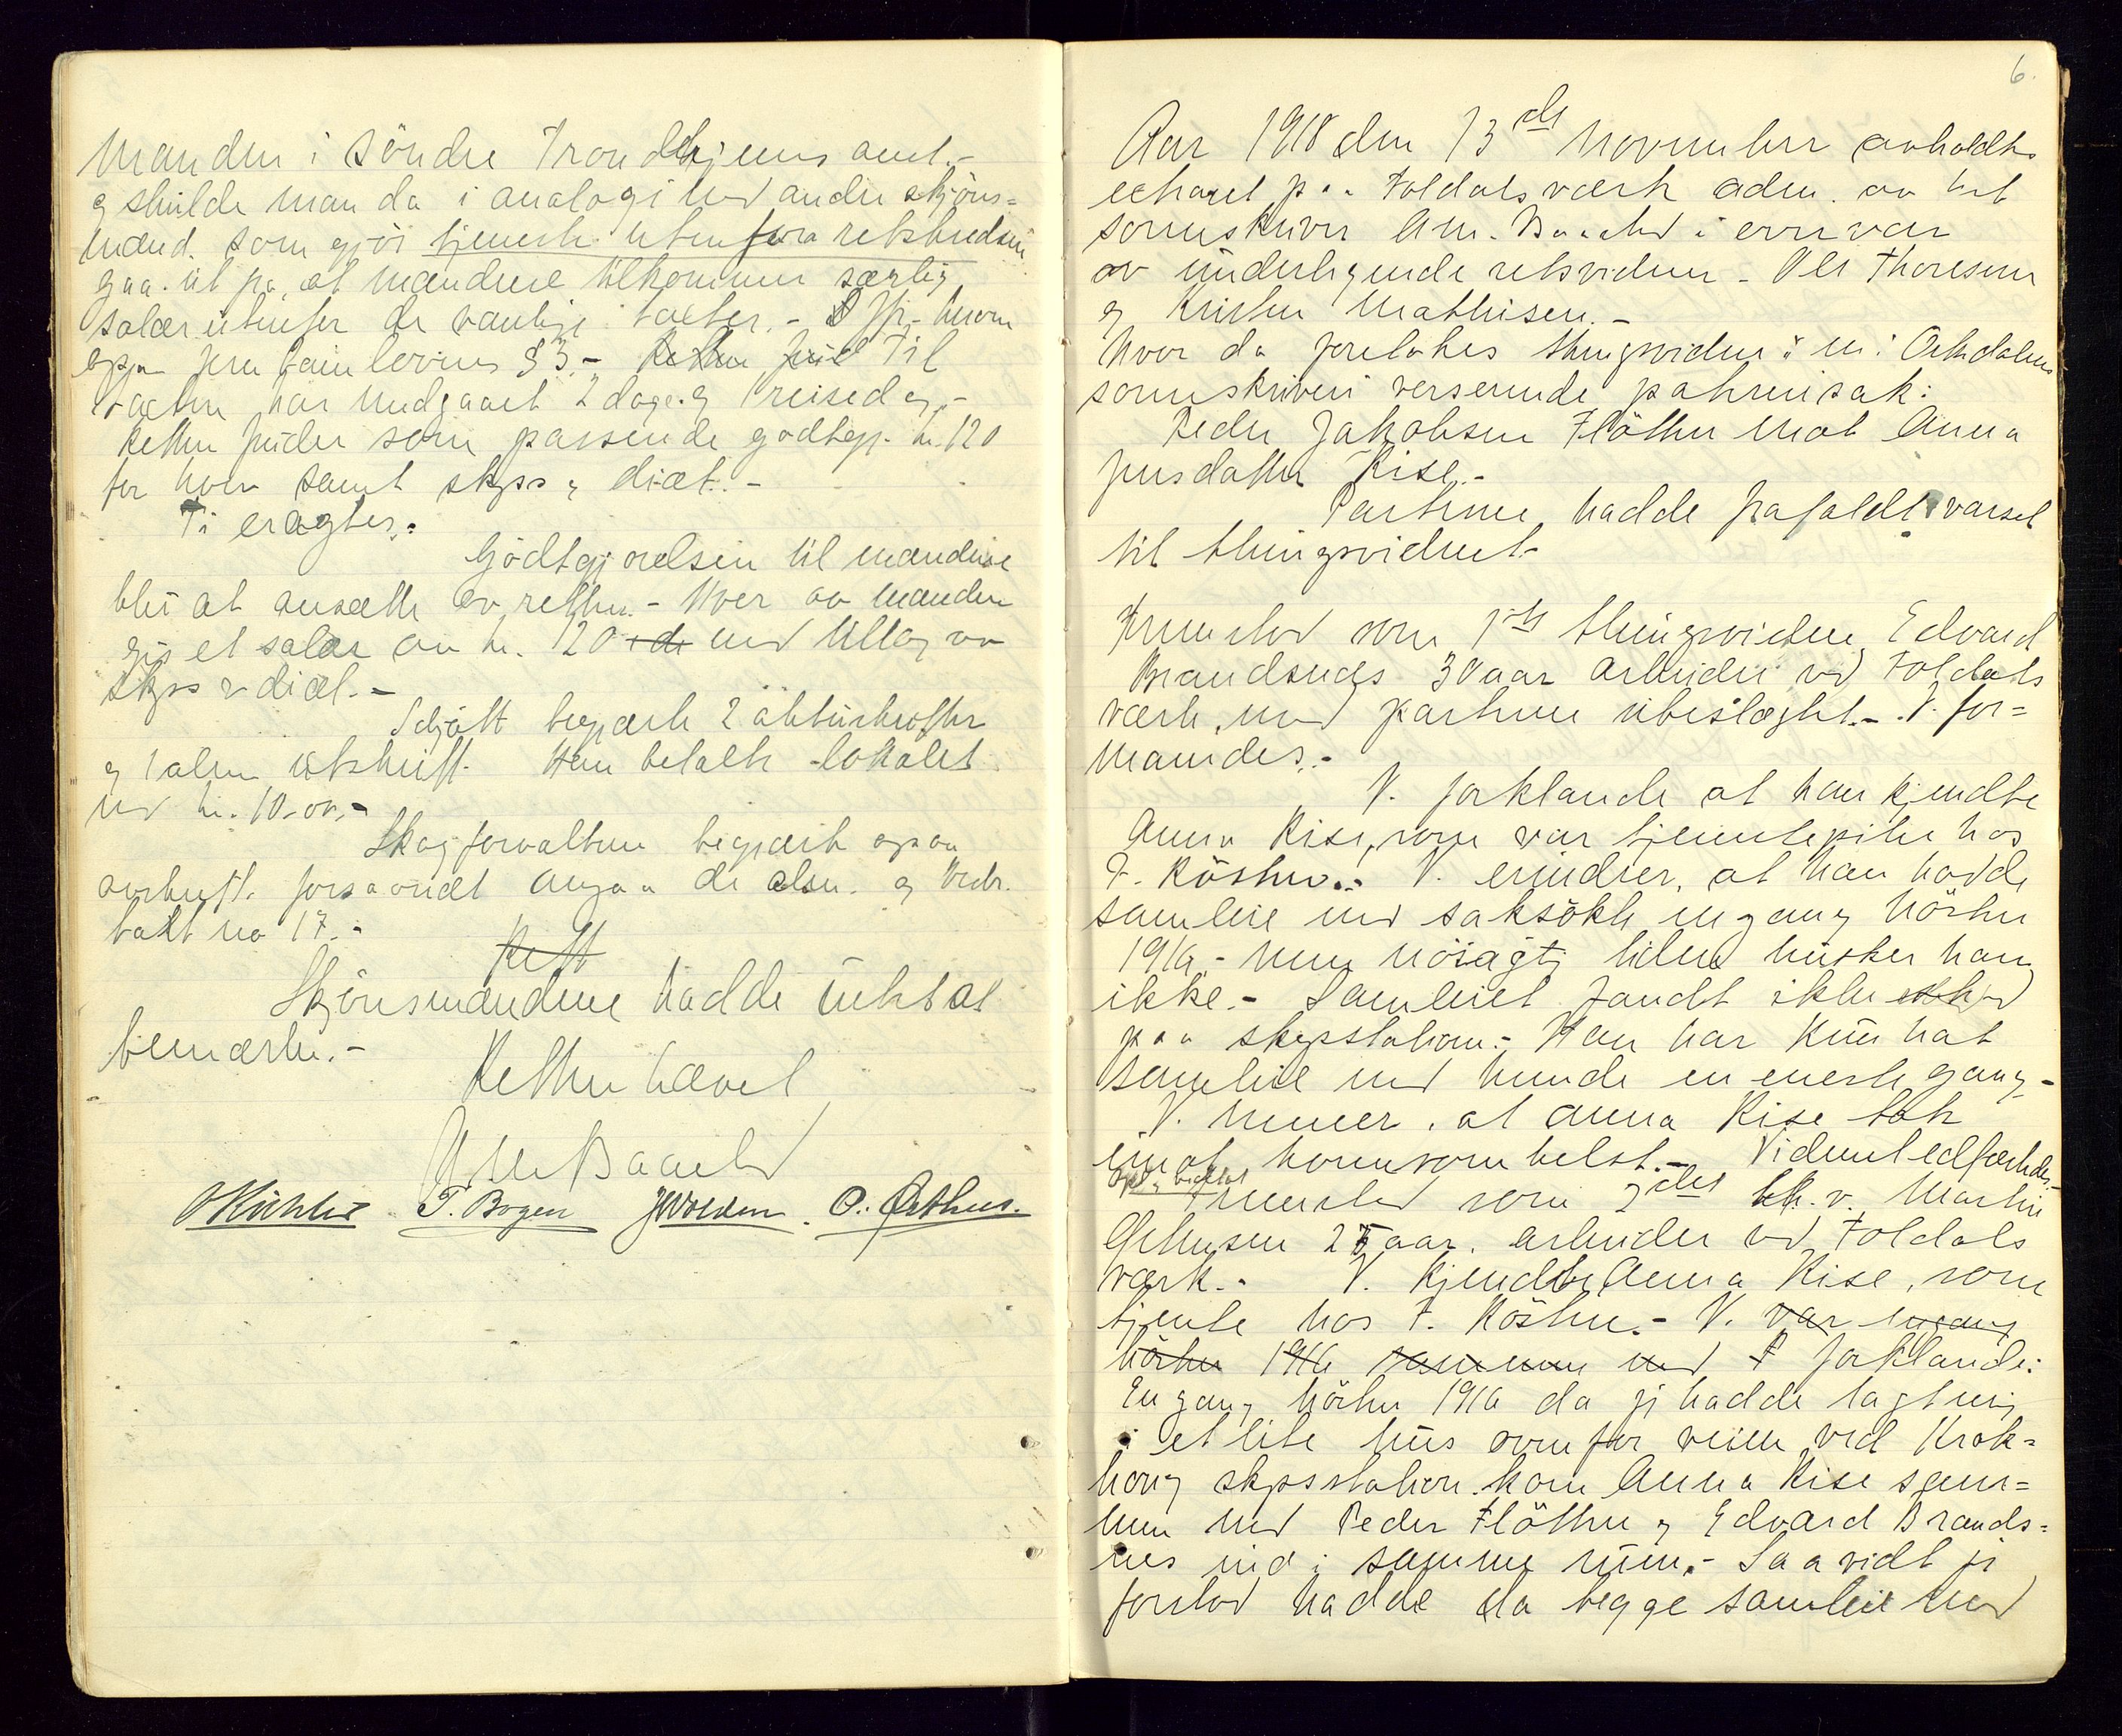 manden i Söndre Trondhjems amt.-
og skulde man da i analogi med andre skjöns=
mænd. som gjör tjeneste utenfora retskredsen
gaa. ut fra, at mændene tilkommer særlig
salær utenfor de vanlige takter.- Jfr. herom
ogsaa jernbanelovens § 3.- Retten find Til
takten har medgaaet 2 dage. og 1 reisedag.-
Retten finder som passende godtgj. kr. 120
for hver samt skyss og diæt.-
Ti eragtes:
Godtgjörelsen til mændene
blir at ansætte av retten.- Hver av mændene
gis et salær av kr. 120 med tillæg av
skyss & diæt.-
Schjött begjærte 2 aktutskrifter
og 1 alm utskrift. Han betalte lokalet
med kr. 10.00.-
Skogforvalteren begjærte ogsaa
avskrift forsaavidt angaar de alm. og vedr.
takt no 17.-
Rett
Skjönsmændene hadde intet at
bemærke.-
Retten hævet
Aur Baache
OKühler T. Bogen JWolden. O. Østhus.
6.
Aar 1918 den 13de November avholdtes
extraret paa Foldals værk adm. av
sorenskriver Am. Baache i overvær
av underlignende retsvidner - Ole Thoresen
og Kristen Mathisen.-
Hvor da foretokes thingsvidne i en i Orkdalens
sorenskriveri verserende paternisak:
Peder Jakobsen Flötten mot Anna
Jensdatter Rise.-
Parterne hadde frafaldt varsel
til thingsvidnet-
Fremstod som 1ste thingsvidne Edvard
Brandsnes 30 aar arbeider ved Foldals
værk, med parterne ubeslægtet.- V. for=
manedes.-
V. forklarede at han kjendte
Anna Rise, som var tjenestepike hos
F. Kösten.- V. erindrer, at han hadde
samleie med saksökte engang hösten
1916.- men nöiagtig tiden husker han
ikke.- Samleiet fandt ikke sted
paa skysstation.- Han har kun hat
samleie med hende en eneste gang-
V. mener, at Anna Rise tok
imot hvemsomhelst.- Vidneutedfærdes.-
Opl. & vedtat
Fremstod som 2det th. v. Martin
Gethusen 25 aar. arbeider ved Foldals
værk.- V. kjendte Anna Rise, som
tjente hos F. Kösten.- V. var engang
hösten 1916 sammen med P forklarede:
En gang hösten 1916 da jeg hadde lagt mig
i et lite hus ovenfor veien ved Krok=
houg skysstation. kom Anna Rise sam=
men med Peder Flötten og Edvard Brands=
nes ind i samme rum.- Saavidt jeg
forstod hadde da begge samleie med